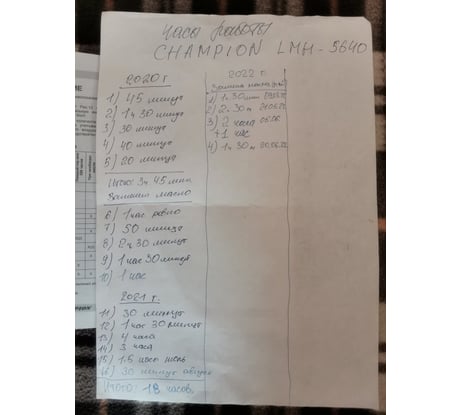 Часы работы
CHAMPION LMH-5640
2020 г
1) 45 минут
2) 1 ч 30 минут
3) 30 минут
4) 40 минут
5) 20 минут
Итого: 3ч 45 мин
Заменил масло
6) 1 час ровно
7) 50 минут
8) 2 ч 30 минут
9) 1 час 30 минут
10) 1 час
2021 г.
11) 30 минут
12) 1 час 30 минут
13) 4 часа
14) 3 часа
15) 1.5 часа июль
16) 30 минут август
Итого: 18 часов.
2022 г.
Замена масла
1) 1ч 30мин
2) 2ч. 30м
3) 2 часа 06.06
+1 час
4) 1ч 30м 20.06.22